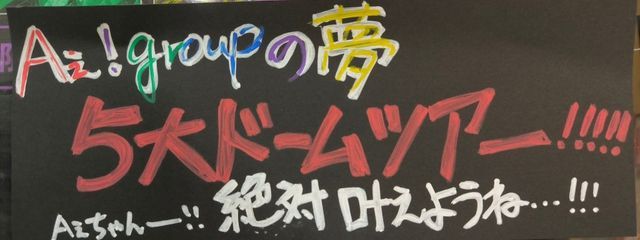 Aぇ!groupの夢
5大ドームツアー!!!!!
Aぇちゃんー!! 絶対叶えようね…!!!